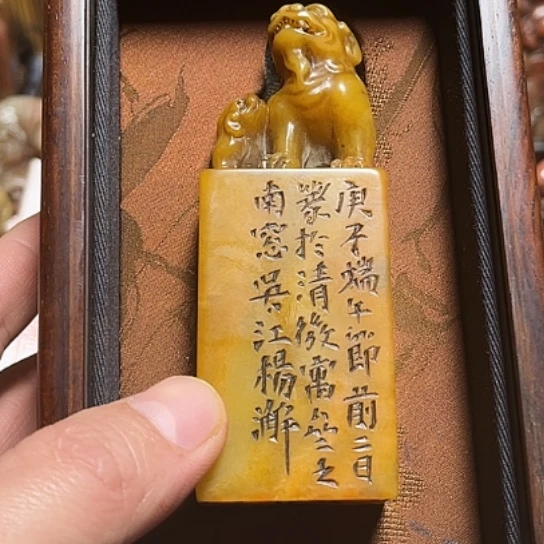 庚子端午節前二日
篆於清徵寓之
南窓吳江楊澥